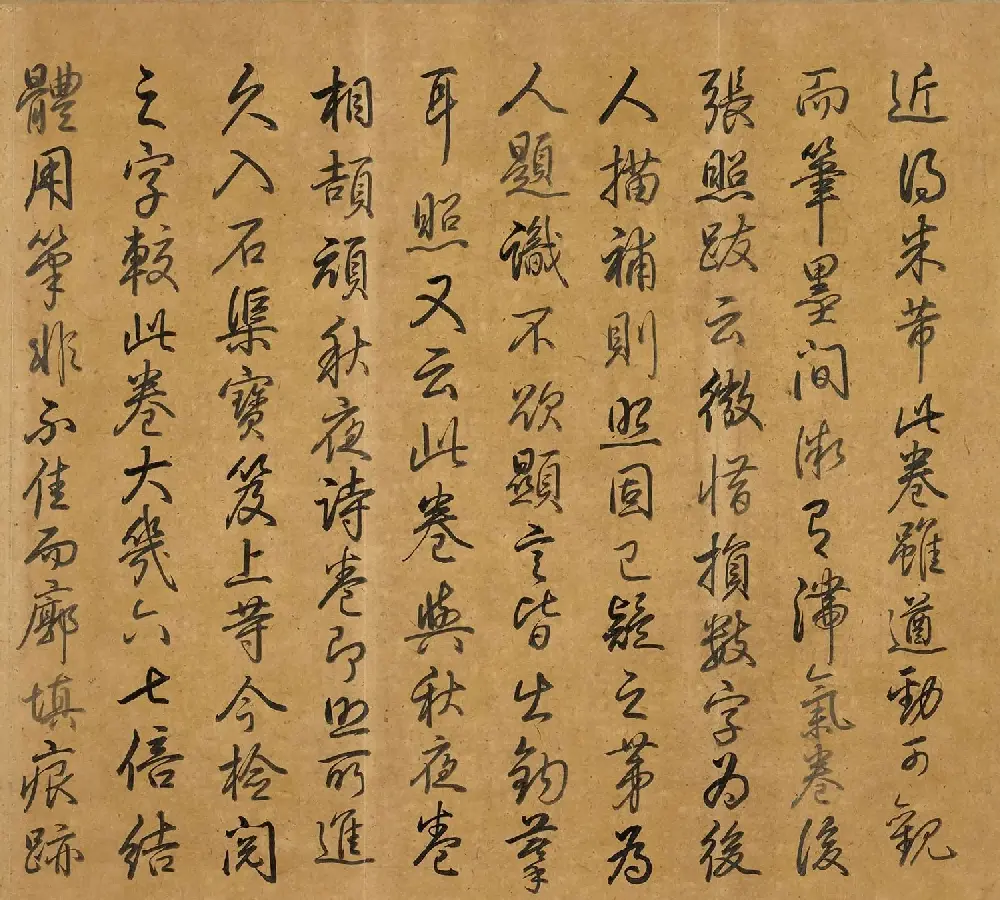 近得米芾此卷雖遒勁可觀
而筆墨間微有滯氣卷後
張照跋云微惜損數字為後
人描補則照固已疑之第為
人題識不欲顯言皆出鉤摹
耳照又云此卷與秋夜卷
相頡頏秋夜詩卷即照所進
久入石渠寶笈上等今檢閱
之字較此卷大幾六七倍結
體用筆非不佳而廓填痕跡